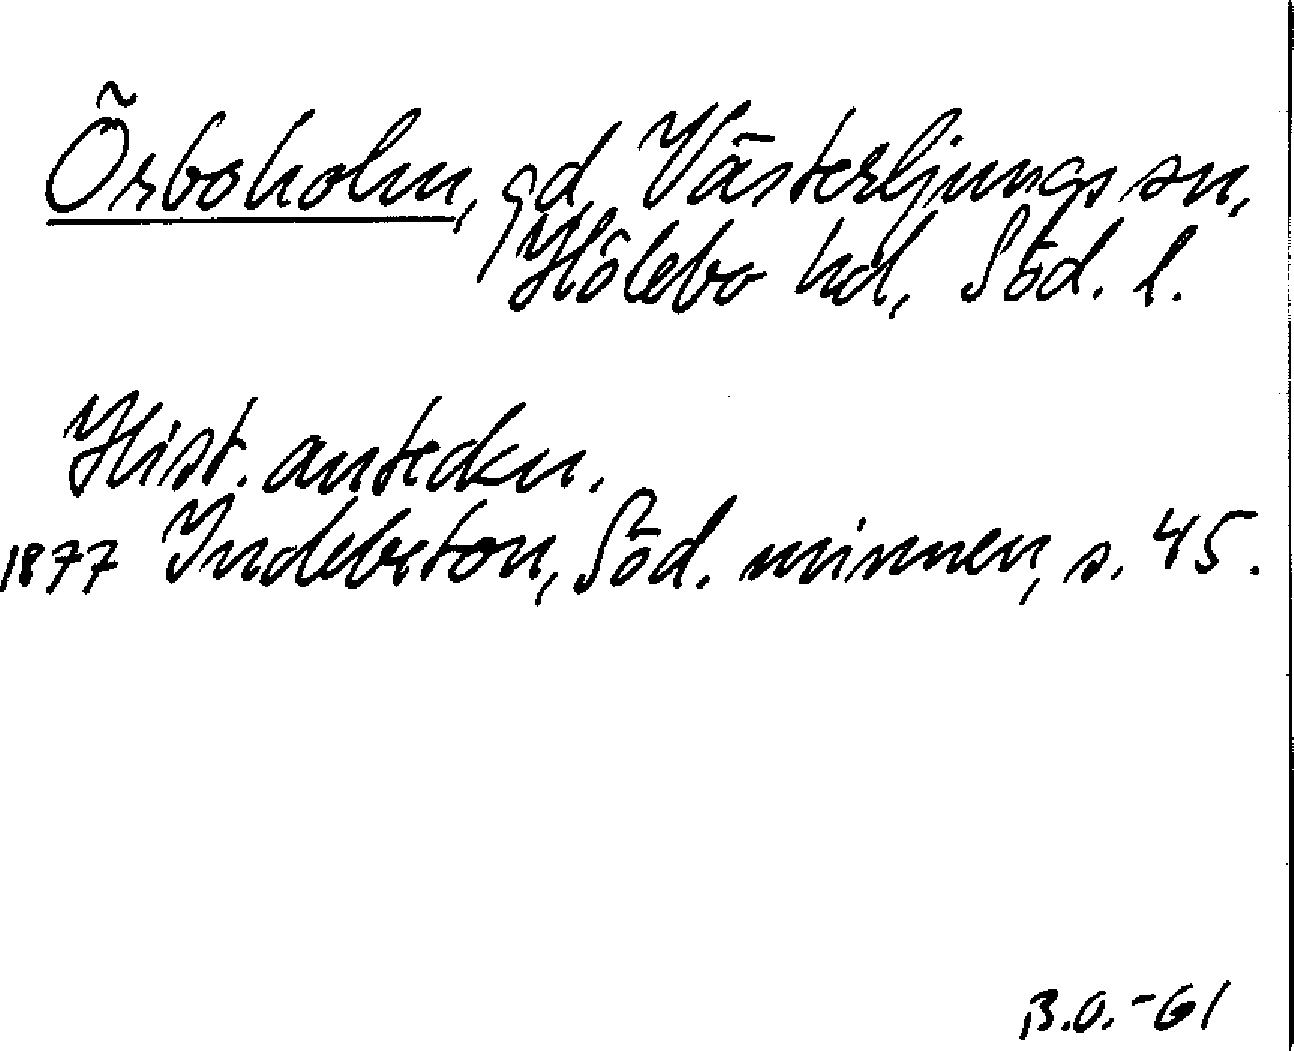 Örboholm, gd, Västerljungs sn,
Hölebo hd, Söd. l.
Hist. anteckn.
1877 Indebeton, Söd. minnen, s. 45.
B.O.-61